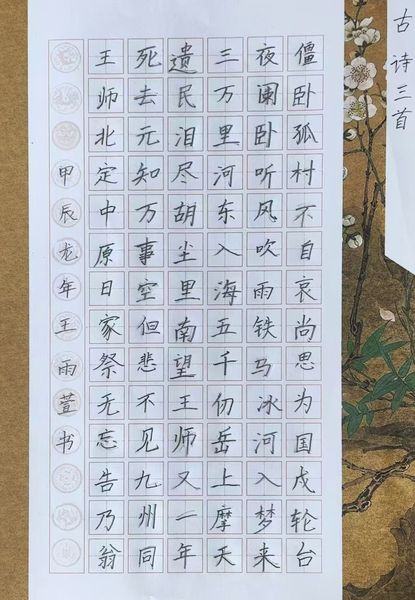 古诗三首
僵卧孤村不自哀尚思为国戍轮台
夜阑卧听风吹雨铁马冰河入梦来
三万里河东入海五千仞岳上摩天
遗民泪尽胡尘里南望王师又一年
死去元知万事空但悲不见九州同
王师北定中原日家祭无忘告乃翁
甲辰龙年王雨萱书